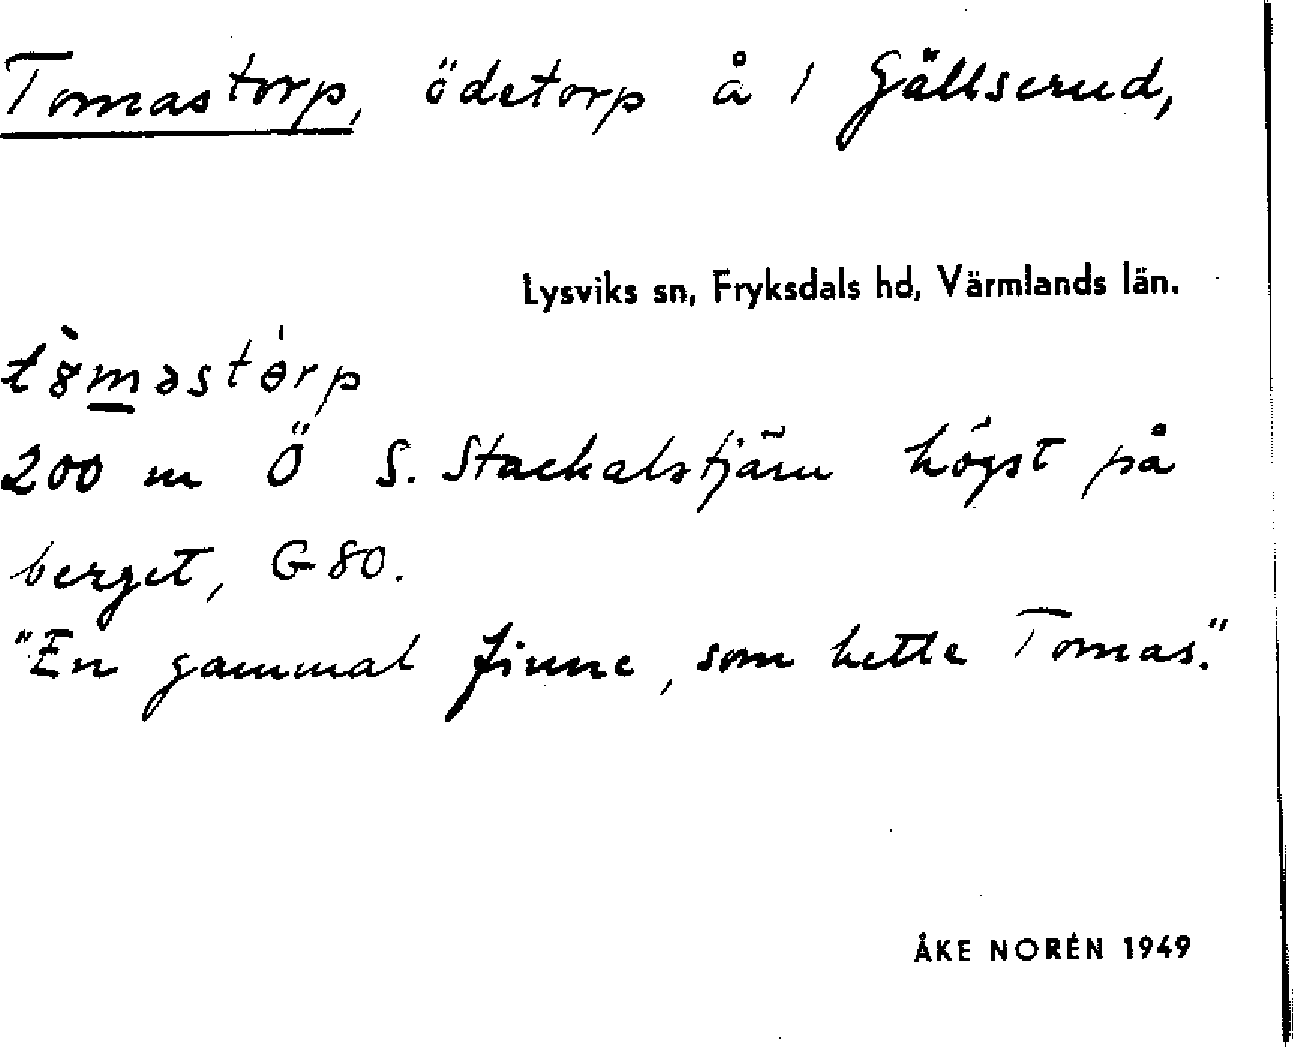 Tomastorp, ödetorp å 1 Gällserud,
Lysviks sn, Fryksdals hd, Värmlands län.
200 m Ö S. Stackalstjärn högst på
berget, G 80.
"En gammal finne, som hette Tomas."
ÅKE NORÉN 1949